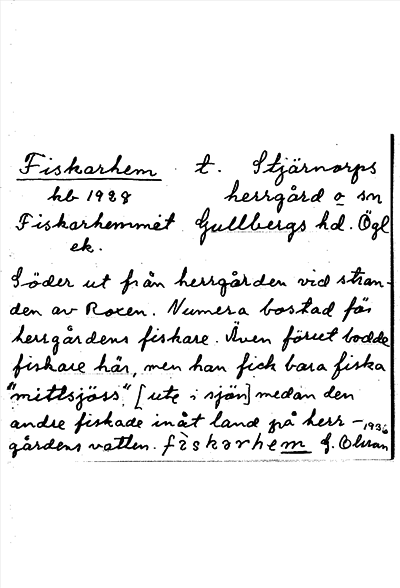 Fiskarhem t. Stjärnorps
kb 1928 herrgård o sn
Fiskarhemmet Gullbergs hd. Ögl
ek.
Söder ut från herrgården vid stran-
den av Roxen. Numera bostad för
herrgårdens fiskare. Även förut bodde
fiskare här, men han fick bara fiska
"mittsjöss", [ute i sjön] medan den
andre fiskade inåt land på herr-
gårdens vatten. fiskarhem G. Olsson
1936